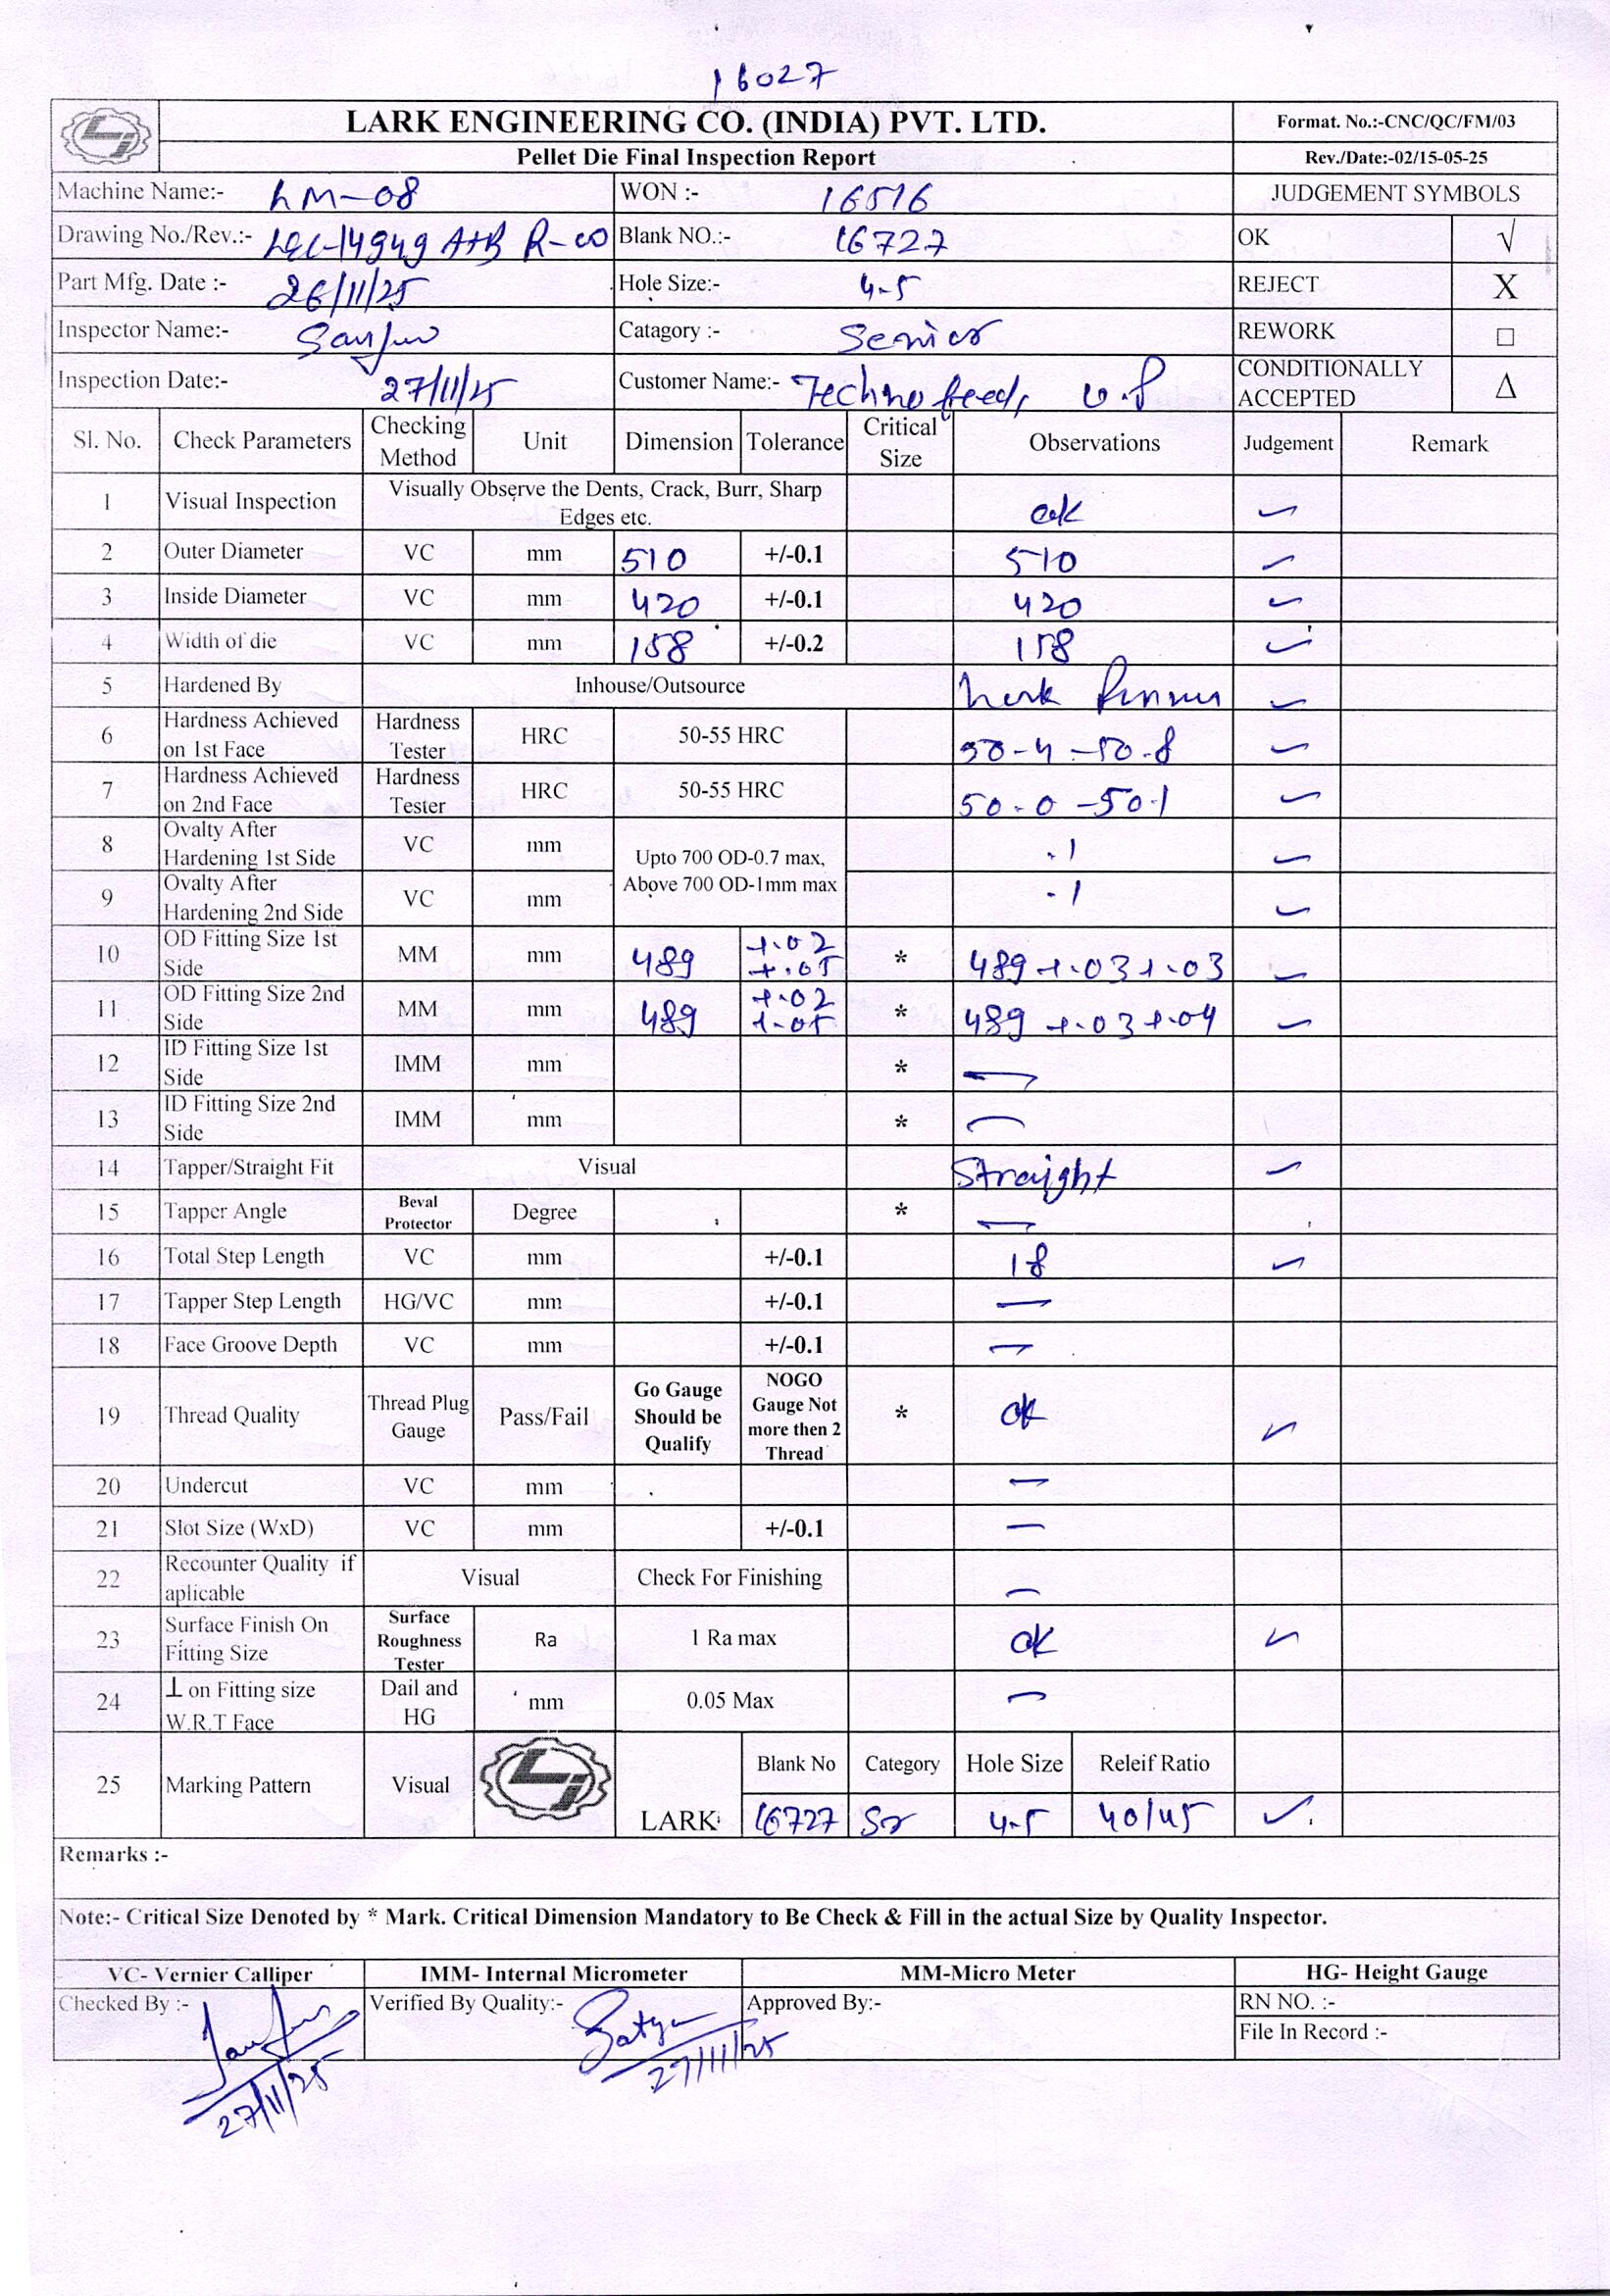 16027
LARK ENGINEERING CO. (INDIA) PVT. LTD.
Format. No.:-CNC/QC/FM/03
Pellet Die Final Inspection Report
Rev./Date:-02/15-05-25
Machine Name:- LM-08 WON :- 16516 JUDGEMENT SYMBOLS
Drawing No./Rev.:- LEC-14949 A+B R-00 Blank NO.:- 16727 OK √
Part Mfg. Date :- 26/11/25 Hole Size:- 4.5 REJECT X
Inspector Name:- Catagory :- Senior REWORK □
Inspection Date:- 27/11/25 Customer Name:- Techno feeds U.P CONDITIONALLY ACCEPTED Δ
Sl. No. Check Parameters Checking Method Unit Dimension Tolerance Critical Size Observations Judgement Remark
1 Visual Inspection Visually Observe the Dents, Crack, Burr, Sharp Edges etc. ok ✓
2 Outer Diameter VC mm 510 +/-0.1 510 ✓
3 Inside Diameter VC mm 420 +/-0.1 420 ✓
4 Width of die VC mm 158 +/-0.2 158 ✓
5 Hardened By Inhouse/Outsource ✓
6 Hardness Achieved on 1st Face Hardness Tester HRC 50-55 HRC 50.4 - 50.8 ✓
7 Hardness Achieved on 2nd Face Hardness Tester HRC 50-55 HRC 50.0 - 50.1 ✓
8 Ovalty After Hardening 1st Side VC mm Upto 700 OD-0.7 max, Above 700 OD-1mm max .1 ✓
9 Ovalty After Hardening 2nd Side VC mm .1 ✓
10 OD Fitting Size 1st Side MM mm 489 +.02 +.05 * 489 +.03 +.03 ✓
11 OD Fitting Size 2nd Side MM mm 489 +.02 +.05 * 489 +.03 +.04 ✓
12 ID Fitting Size 1st Side IMM mm * —
13 ID Fitting Size 2nd Side IMM mm * —
14 Tapper/Straight Fit Visual Straight ✓
15 Tapper Angle Beval Protector Degree * —
16 Total Step Length VC mm +/-0.1 18 ✓
17 Tapper Step Length HG/VC mm +/-0.1 —
18 Face Groove Depth VC mm +/-0.1 —
19 Thread Quality Thread Plug Gauge Pass/Fail Go Gauge Should be Qualify NOGO Gauge Not more then 2 Thread * ok ✓
20 Undercut VC mm —
21 Slot Size (WxD) VC mm +/-0.1 —
22 Recounter Quality if aplicable Visual Check For Finishing —
23 Surface Finish On Fitting Size Surface Roughness Tester Ra 1 Ra max ok ✓
24 ⊥ on Fitting size W.R.T Face Dail and HG mm 0.05 Max —
25 Marking Pattern Visual LARK Blank No Category Hole Size Releif Ratio
16727 Sr 4.5 40/45 ✓
Remarks :-
Note:- Critical Size Denoted by * Mark. Critical Dimension Mandatory to Be Check & Fill in the actual Size by Quality Inspector.
VC- Vernier Calliper IMM- Internal Micrometer MM-Micro Meter HG- Height Gauge
Checked By :- Verified By Quality:- Satya Approved By:- RN NO. :-
File In Record :-
27/11/25 27/11/25